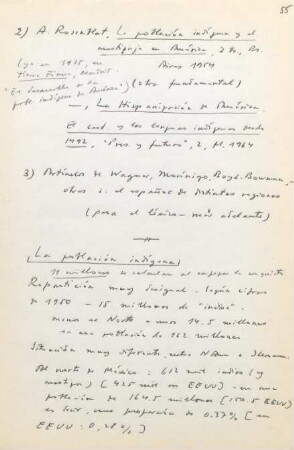 55
2) A. Rosenblat, La población indígena y el
mestizaje en América, 2 ts., Bs.
Aires 1954
(ya en 1935, en
Tierra Firme, Madrid
"El desarrollo de la
pobl. indígena de América")
(obra fundamental)
—, La Hispanización de América.
El cast. y las lenguas indígenas desde
1492, "Pres. y futuro", 2, M. 1964
3) Artículos de Wagner, Morínigo, Boyd-Bowman,
otros s. el español de distintas regiones
(para el léxico – más adelante)
La población indígena
11 millones se calculan al empezar la conquista
Repartición muy desigual. Según cifras
de 1950 – 15 millones de "indios".
menos al Norte – unos 14.5 millones
en una población de 162 millones
Situación muy diferente entre NAm. e Iberoam.
Al norte de México: 612 mil indios (y
mestizos) [425 mil en EEUU] – en una
población de 164.5 millones [150.5 EEUU]
es decir, una proporción de 0.37% [en
EEUU: 0,28%]